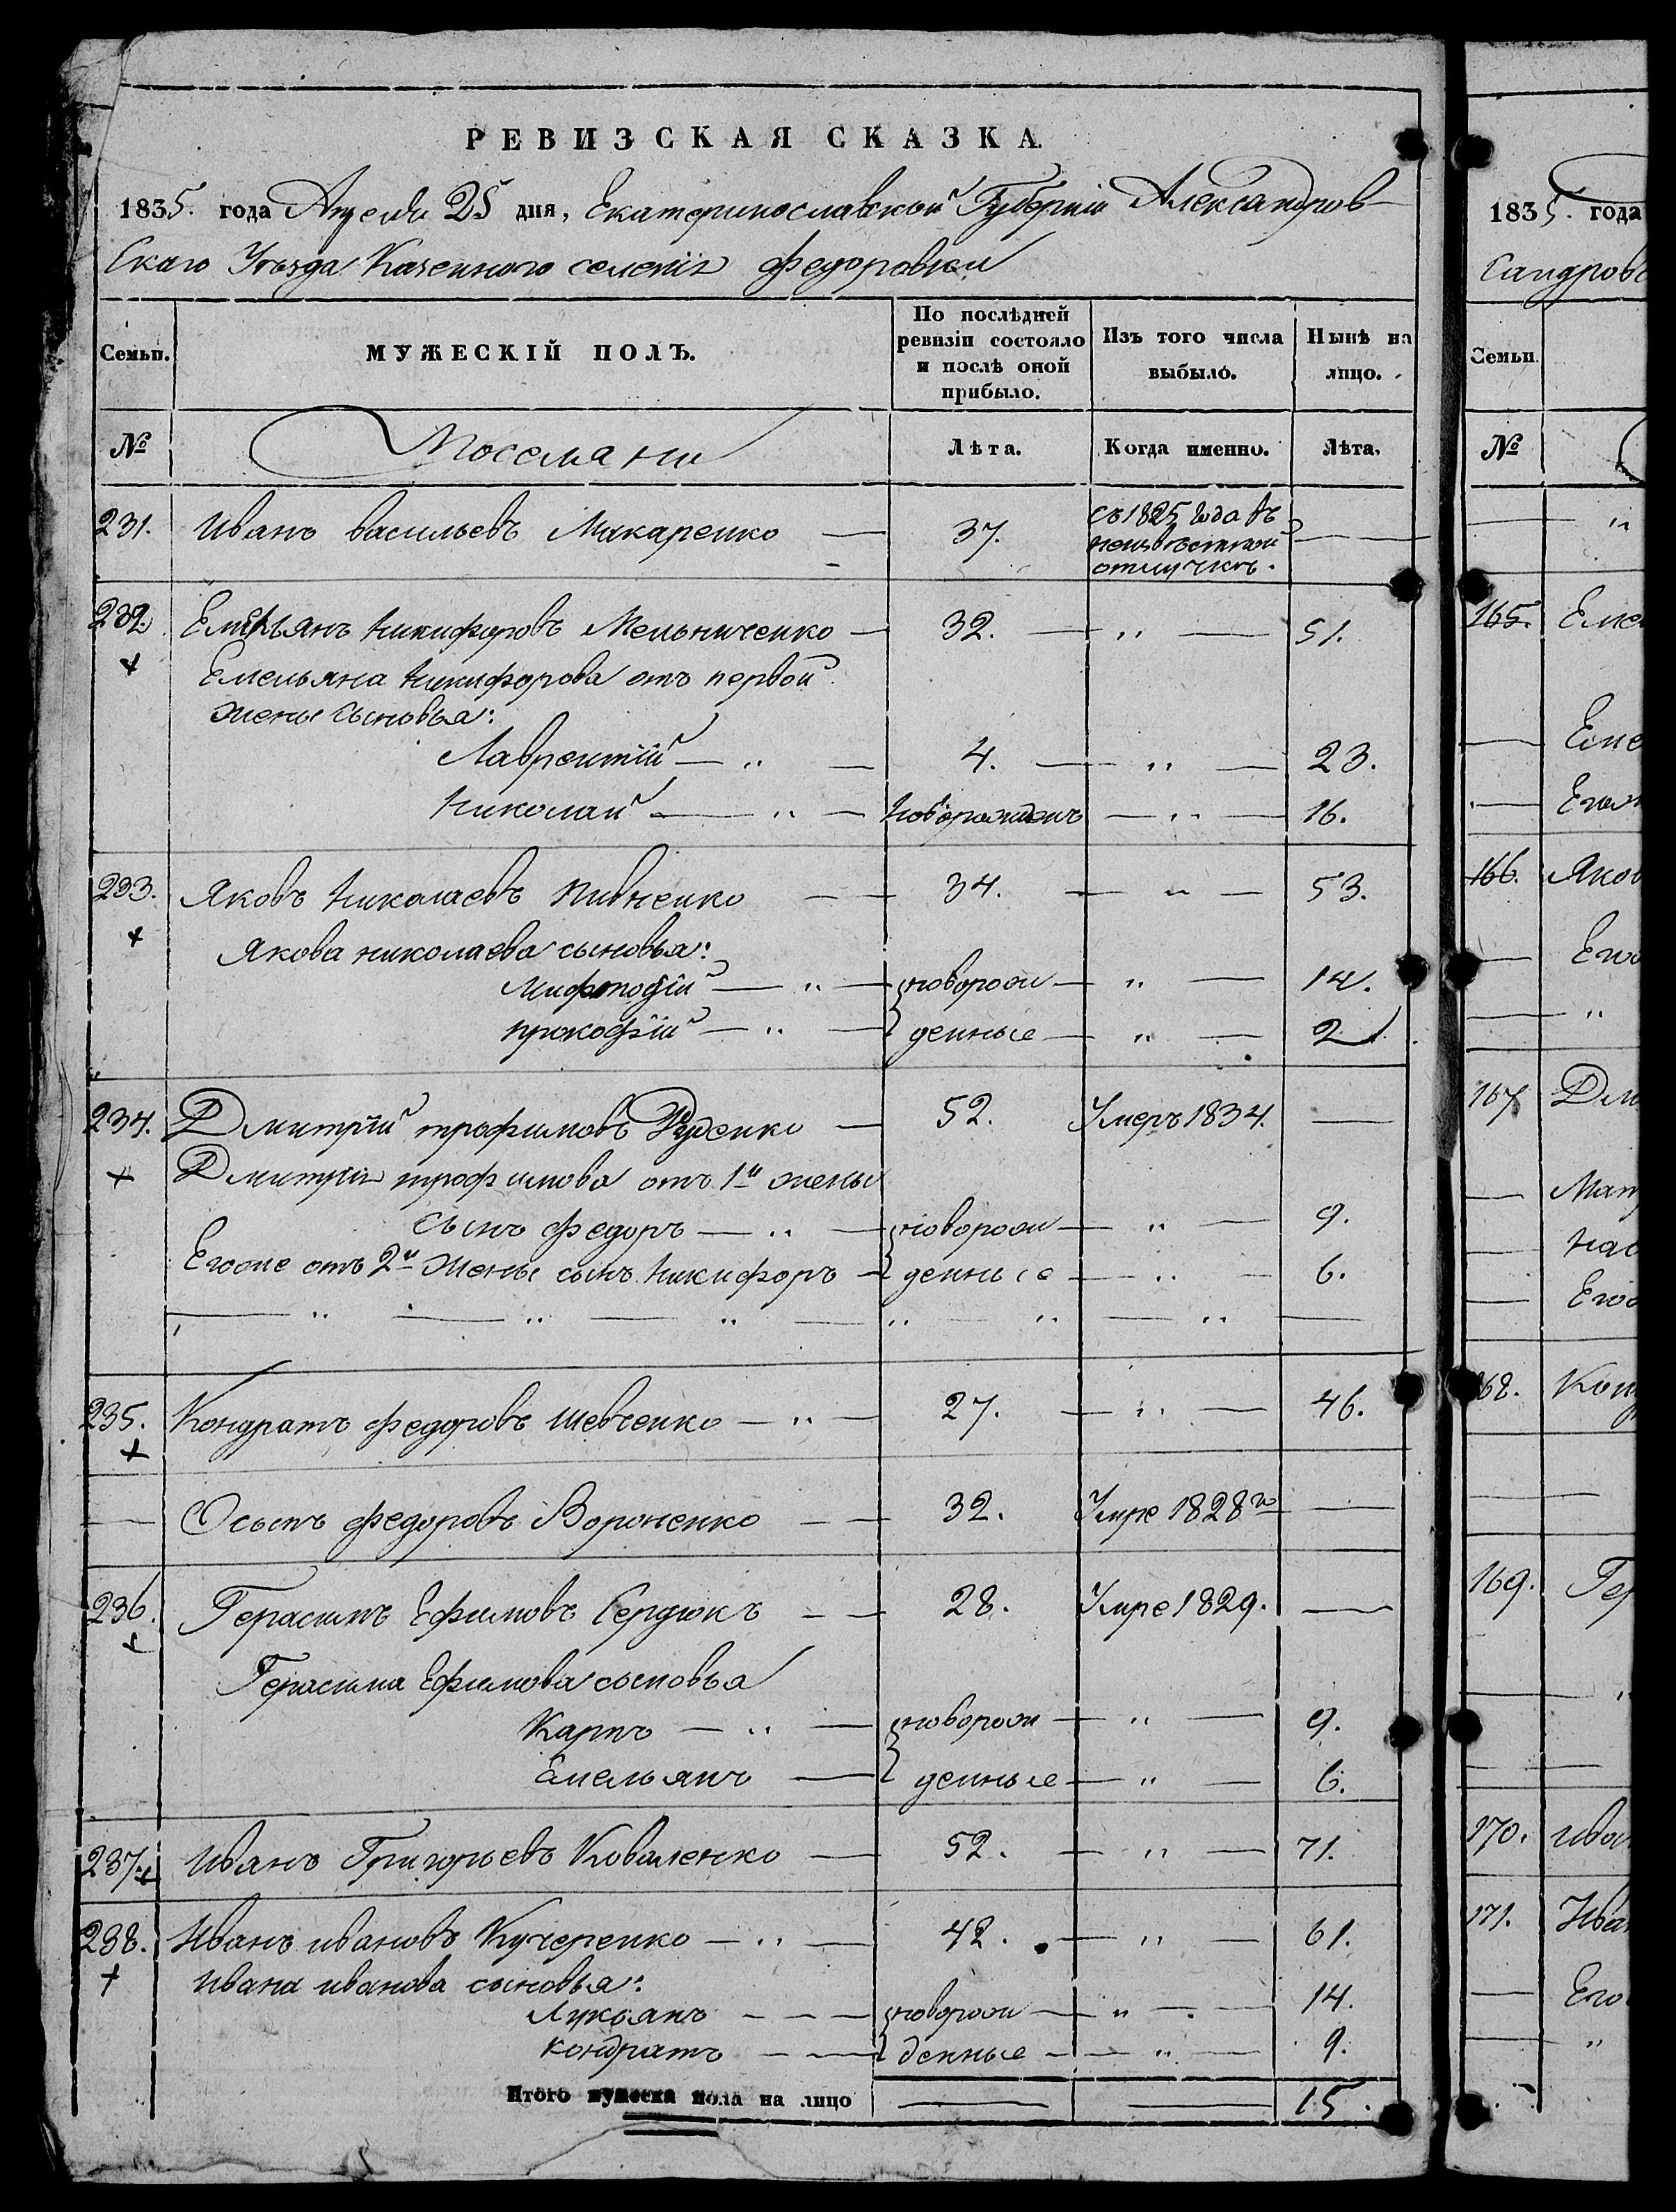 РЕВИЗСКАЯ СКАЗКА.
1835. года Апреля 25 дня, Екатеринославской Губернии Александров-
скаго Уезда Казенного селения Федоровки
Семьи. МУЖЕСКІЙ ПОЛЪ. По послѣдней ревизіи состояло и послѣ оной прибыло. Изъ того числа выбыло. Нынѣ на лицо.
№ Поселяни Лѣта. Когда именно. Лѣта.
231. Иванъ васильевъ Макаренко — 37. съ 1825 года въ неизвѣстной отлучкѣ. —
232. Емельянъ никифоровъ Мельниченко — 32. — " — 51.
Емельяна никифорова отъ первой
жены сыновья:
Лаврентій — " — 4. — " — 23.
Николай — " — новорожденъ — " — 16.
233. Яковъ николаевъ Пивненко — 34. — " — 53.
Якова николаева сыновья:
Мифтодій — " — новорож — " — 14.
прокофій — " — денные — " — 2
234. Дмитрій трофимовъ Руденко — 52. Умеръ 1834. —
Дмитрія трофимова отъ 1й жены
сынъ федоръ — " — новорож — " — 9.
Егоже отъ 2й жены сынъ никифоръ — денные — " — 6.
235. Кондратъ федоровъ шевченко — " — 27. — " — 46.
— Осыпъ федоровъ Вороненко — 32. Умре 1828го —
236. Герасимъ Ефимовъ Сердюкъ — 28. Умре 1829. —
Герасима Ефимова сыновья
Карпъ — " — новорож — " — 9.
Емельянъ — денные — " — 6.
237. Иванъ Григорьевъ Коваленко — 52. — " — 71.
238. Иванъ ивановъ Кучеренко — " — 42. — " — 61.
Ивана иванова сыновья:
Лукьянъ — новорож — " — 14.
кондратъ — денные — " — 9.
Итого мужеска пола на лицо — — 15.
1835. года
сандровс
Семьи
№
"
165. Еме
Еме
Егож
166. Яков
Его
"
167 Дми
Мат
нас
Его
168. Конд
169. Гер
170. ива
171. Ива
Его
"